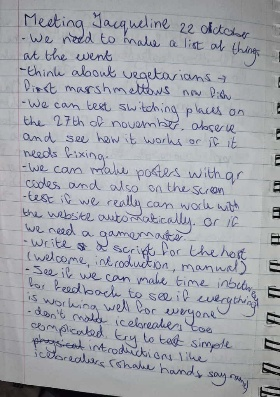 Meeting Jacqueline 22 october
- We need to make a list of things
at the event
- think about vegetarians →
first marshmellows now
- We can test switching places on
the 27th of november. observe
and see how it works or if it
needs fixing.
- We can make posters with qr
codes and also on the screen
- test if we really can work with
the website automatically. or if
we need a gamemaster
- write a script for the host
(welcome, introduction, manual)
- See if we can make time
for feedback to see if everything
is working well for everyone
- don't make icebreakers too
complicated. try to test simple
physical introductions like
icebreakers (shake hands, say